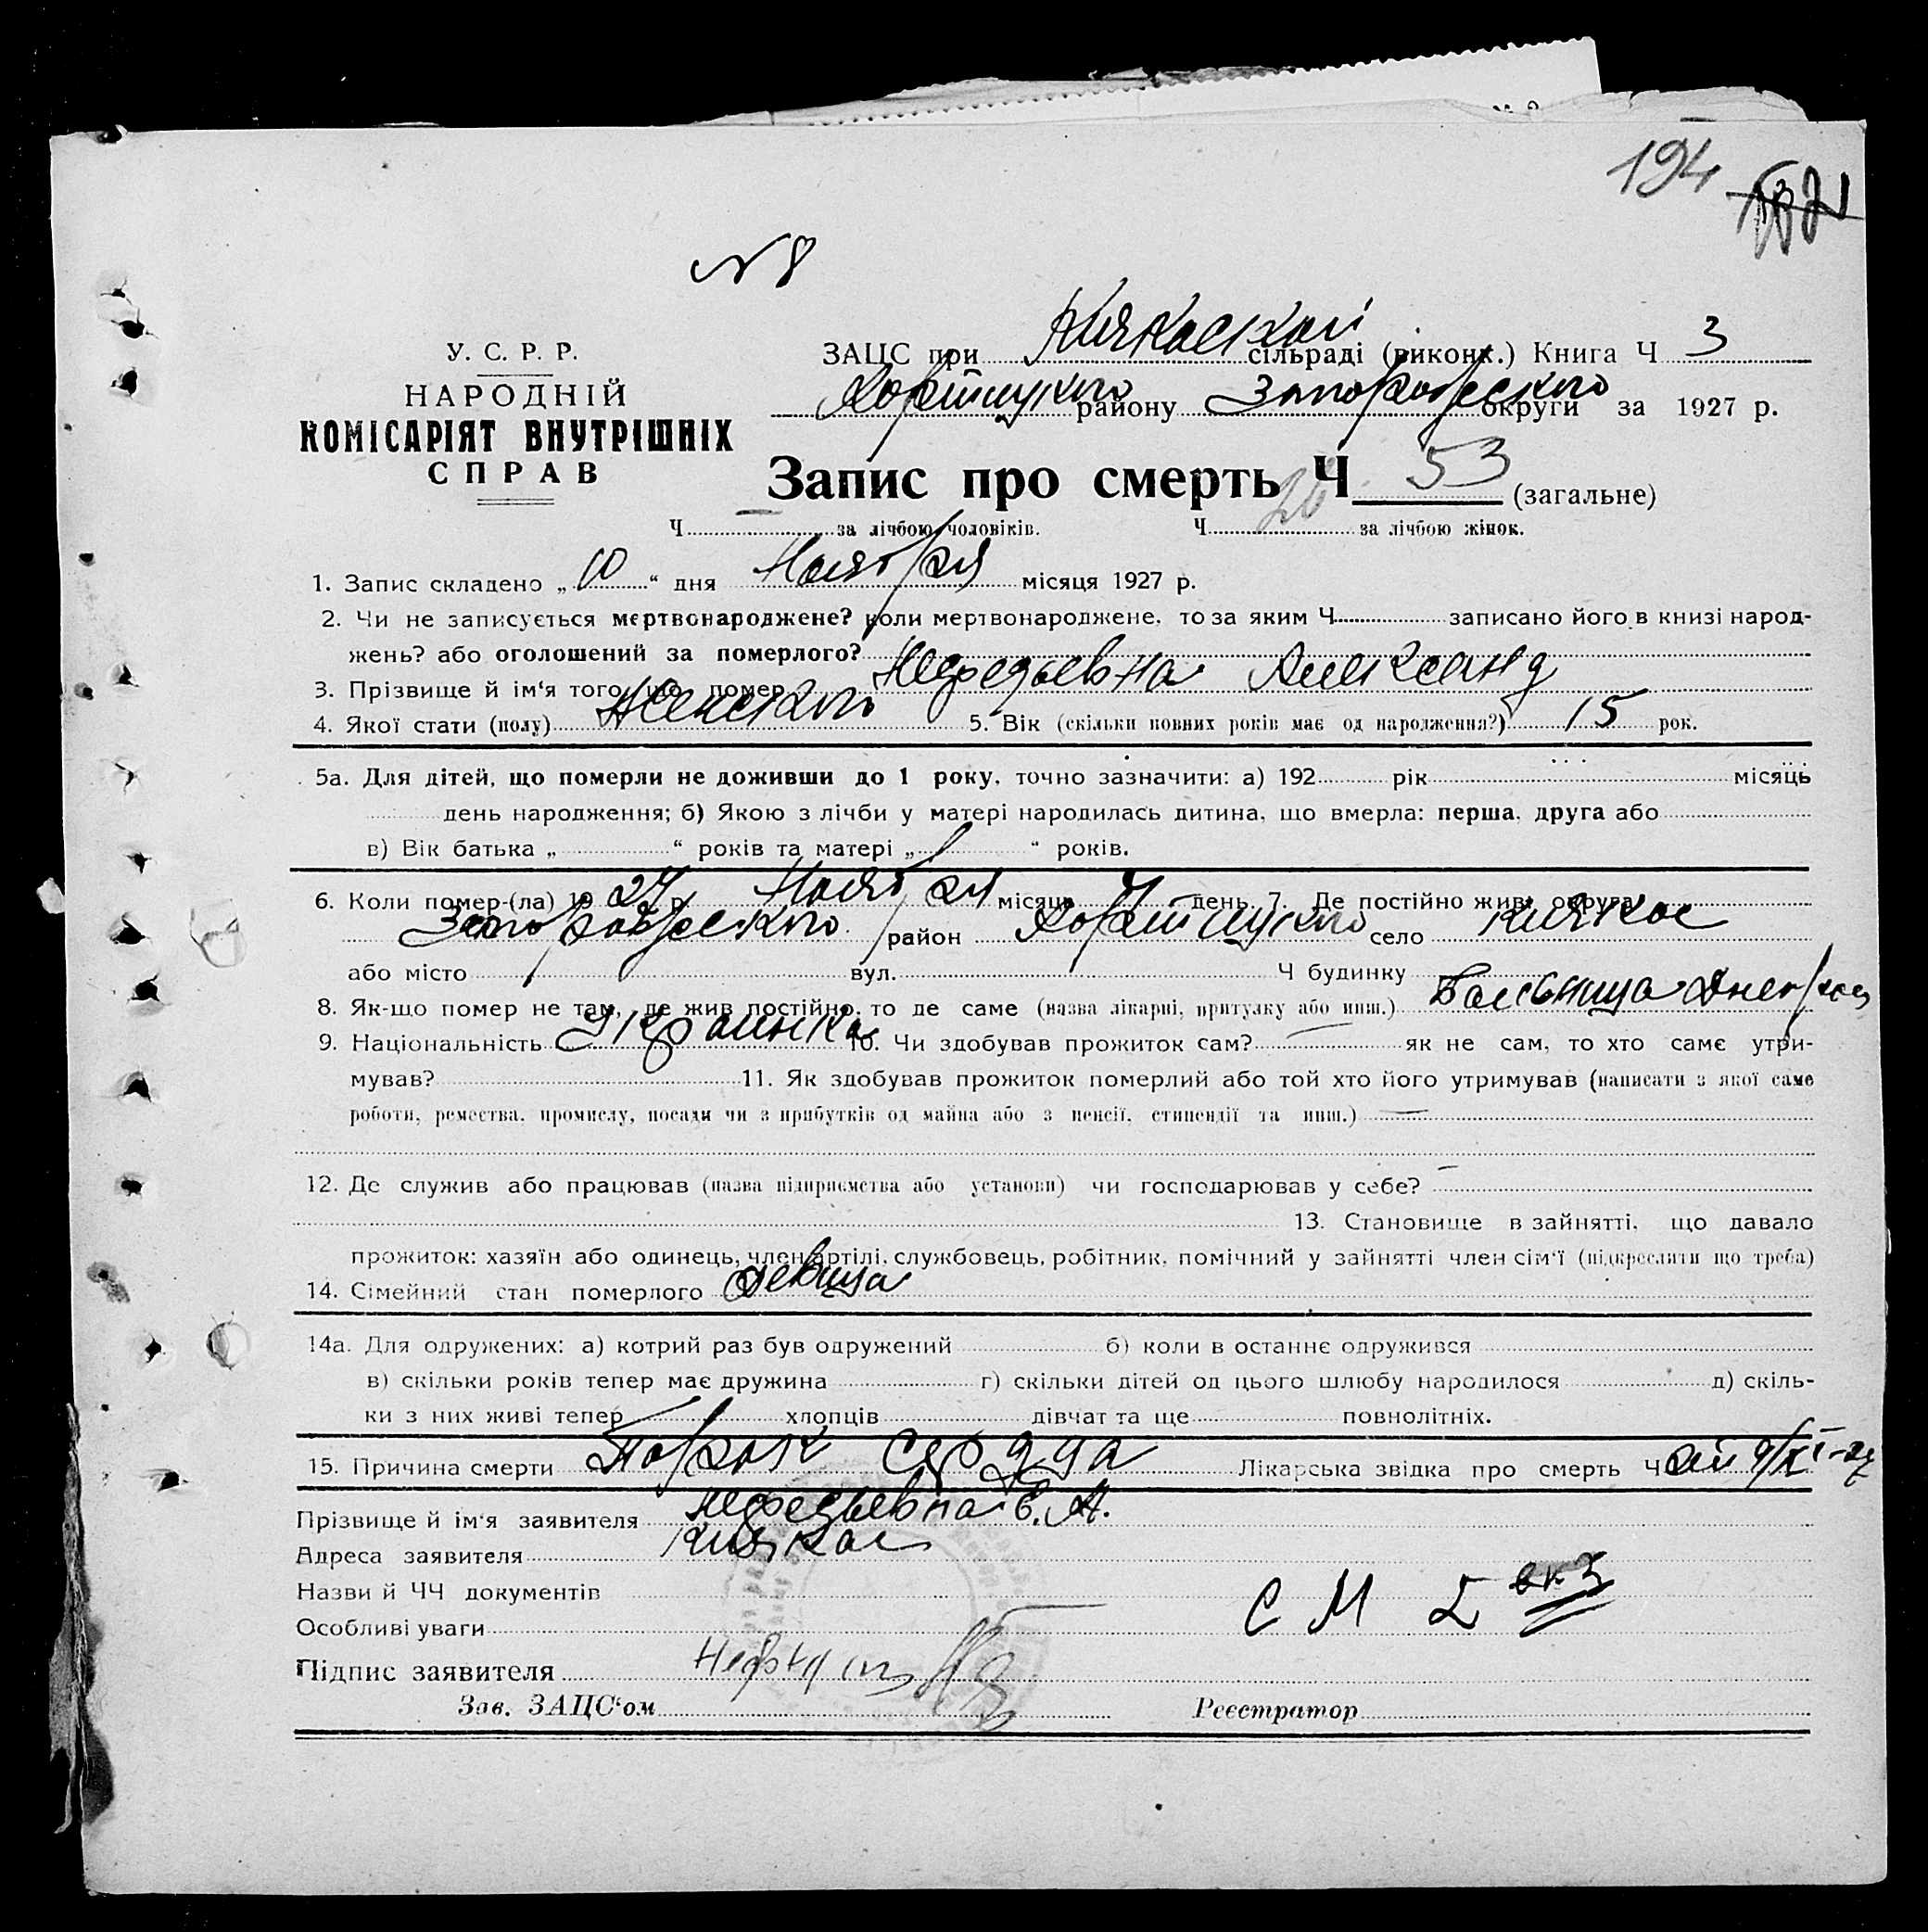 194
N 8
У. С. Р. Р.
НАРОДНІЙ
КОМІСАРІЯТ ВНУТРІШНІХ
СПРАВ
ЗАЦС при Кичкаской сільраді (виконк.) Книга Ч 3
Хортицкого району Запорожского округи за 1927 р.
Запис про смерть Ч 53 (загальне)
Ч — за лічбою чоловіків. Ч 20 за лічбою жінок.
1. Запис складено „ 10 “ дня Ноября місяця 1927 р.
2. Чи не записується мертвонароджене? коли мертвонароджене, то за яким Ч записано його в книзі народ-
жень? або оголошений за померлого?
3. Прізвище й ім‘я того, що помер Нефедьевна Александ
4. Якої стати (полу) Женского 5. Вік (скільки повних років має од народження?) 15 рок.
5а. Для дітей, що померли не доживши до 1 року, точно зазначити: а) 192 рік місяць
день народження; б) Якою з лічби у матері народилась дитина, що вмерла: перша, друга або
в) Вік батька „ “ років та матері „ “ років.
6. Коли помер-(ла) 19 27 р. Ноября місяць 9 день. 7. Де постійно жив: округа
Запорожского район Хортицкого село Кичкас
або місто вул. Ч будинку
8. Як-що помер не там, де жив постійно, то де саме (назва лікарні, притулку або инш.) Больница
9. Національність Украинка 10. Чи здобував прожиток сам? — як не сам, то хто саме утри-
мував? 11. Як здобував прожиток померлий або той хто його утримував (написати з якої саме
роботи, ремества, промислу, посади чи з прибутків од майна або з пенсії, стипендії та инш.) —
12. Де служив або працював (назва підприємства або установи) чи господарював у себе? —
13. Становище в зайнятті, що давало
прожиток: хазяїн або одинець, член артілі, службовець, робітник, помічний у зайнятті член сім‘ї (підкреслити що треба)
14. Сімейний стан померлого девица
14а. Для одружених: а) котрий раз був одружений б) коли в останнє одружився
в) скільки років тепер має дружина г) скільки дітей од цього шлюбу народилося д) скіль-
ки з них живі тепер хлопців дівчат та ще повнолітніх.
15. Причина смерти Порок сердца Лікарська звідка про смерть Ч 9/XI-27
Прізвище й ім‘я заявителя Нефедьевна Е. А.
Адреса заявителя Кичкас
Назви й ЧЧ документів
Особливі уваги
С М
Підпис заявителя
Зав. ЗАЦС‘ом Реєстратор